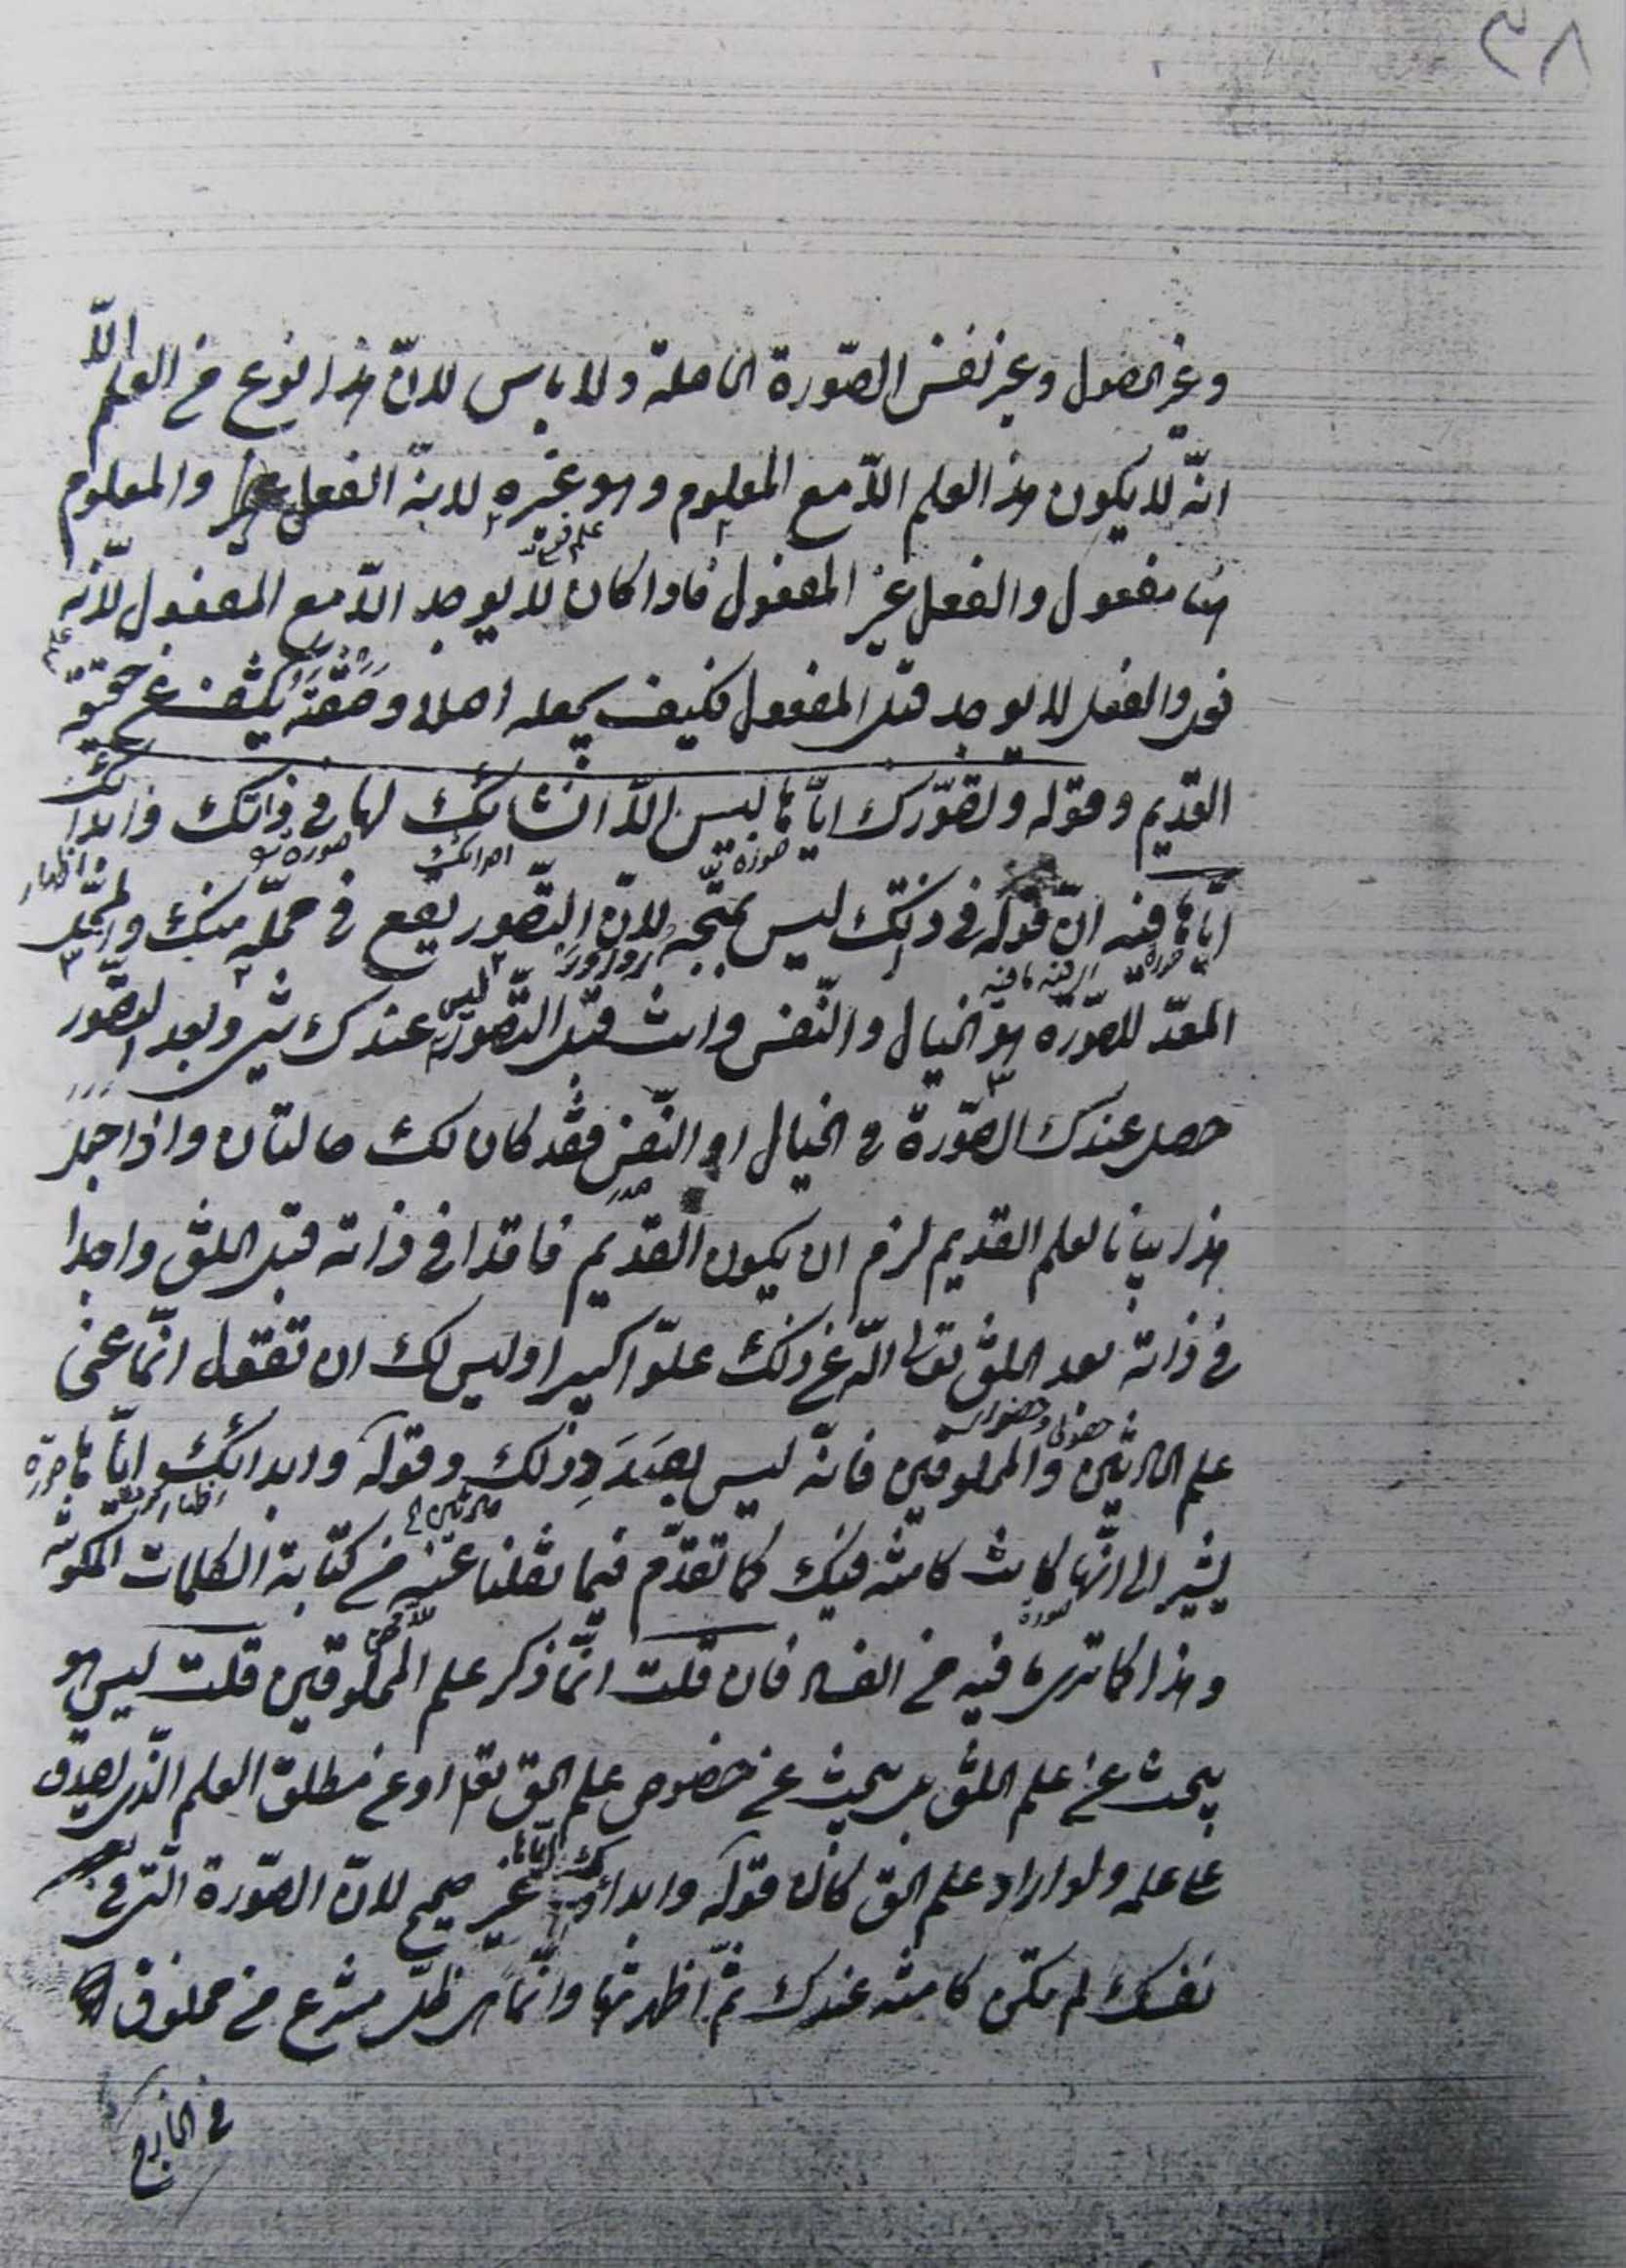 ٣٨
وغير الحصول وغير نفس الصّورة الحاصلة ولا باس لانّ هذا نوع من العلم الّا
انّه لا يكون هذا العلم الّا مع المعلوم وهو غيره لانّه الفعل والمعلوم
هنا مفعول والفعل غير المفعول فاذا كان لا يوجد الّا مع المفعول لانّه
فعل والفعل لا يوجد قبل المفعول فكيف يجعله اصلا وصفة يكشف عن حقيقة
القديم وقوله وتصوّرك ايّاها ليس الّا انشائك لها في ذاتك وابدائك
ايّاها ففيه انّ قوله في ذاتك ليس بمتّجه لانّ التّصور يقع في محلّه منك والمحلّ
المعدّ للصّورة هو الخيال والنّفس وانت قبل التّصور ليس عندك شئ وبعد التّصور
حصل عندك الصّورة في الخيال او النّفس فقد كان لك حالتان واذا جعل
هذا بيانا لعلم القديم لزم ان يكون القديم فاقدا في ذاته قبل الخلق واجدا
في ذاته بعد الخلق تعالى اللّه عن ذلك علوّا كبيرا وليس لك ان تقول انّما عنى
علم الحادثين والمخلوقين فانّه ليس بصَدَدِ ذلك وقوله وابدائك ايّاها
يشير الى انّها كانت كامنة فيك كما تقدّم فيما نقلنا عنه من كتابة الكلمات المكنونة
وهذا كما ترى فيه من الفساد فان قلت انّما ذكر علم المخلوقين قلت ليس هو
يبحث عن علم الخلق بل يبحث عن خصوص علم الحق تعالى او عن مطلق العلم الّذي يصدق
على علمه ولو اراد علم الخلق كان قوله وابدائك ايّاها غير صحيح لانّ الصّورة الّتي في
نفسك لم تكن كامنة عندك ثمّ اظهرتها وانّما هي ظلّ منتزع من مخلوق
في الخارج